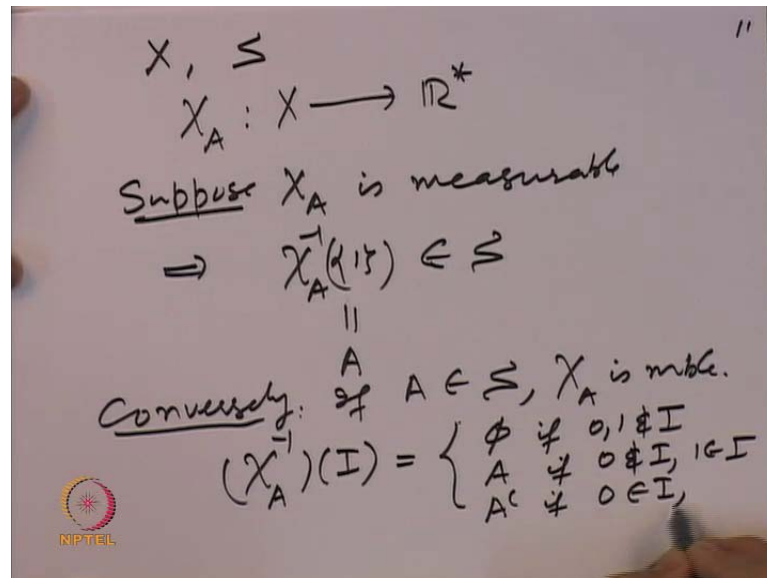 11
X, S
χ_A : X ⟶ ℝ*
Suppose χ_A is measurable
⟹ χ_A^{-1}({1}) ∈ S
||
A
Conversely: If A ∈ S, χ_A is mble.
(χ_A^{-1})(I) = { ϕ if 0,1 ∉ I
A if 0 ∉ I, 1 ∈ I
A^c if 0 ∈ I,
NPTEL